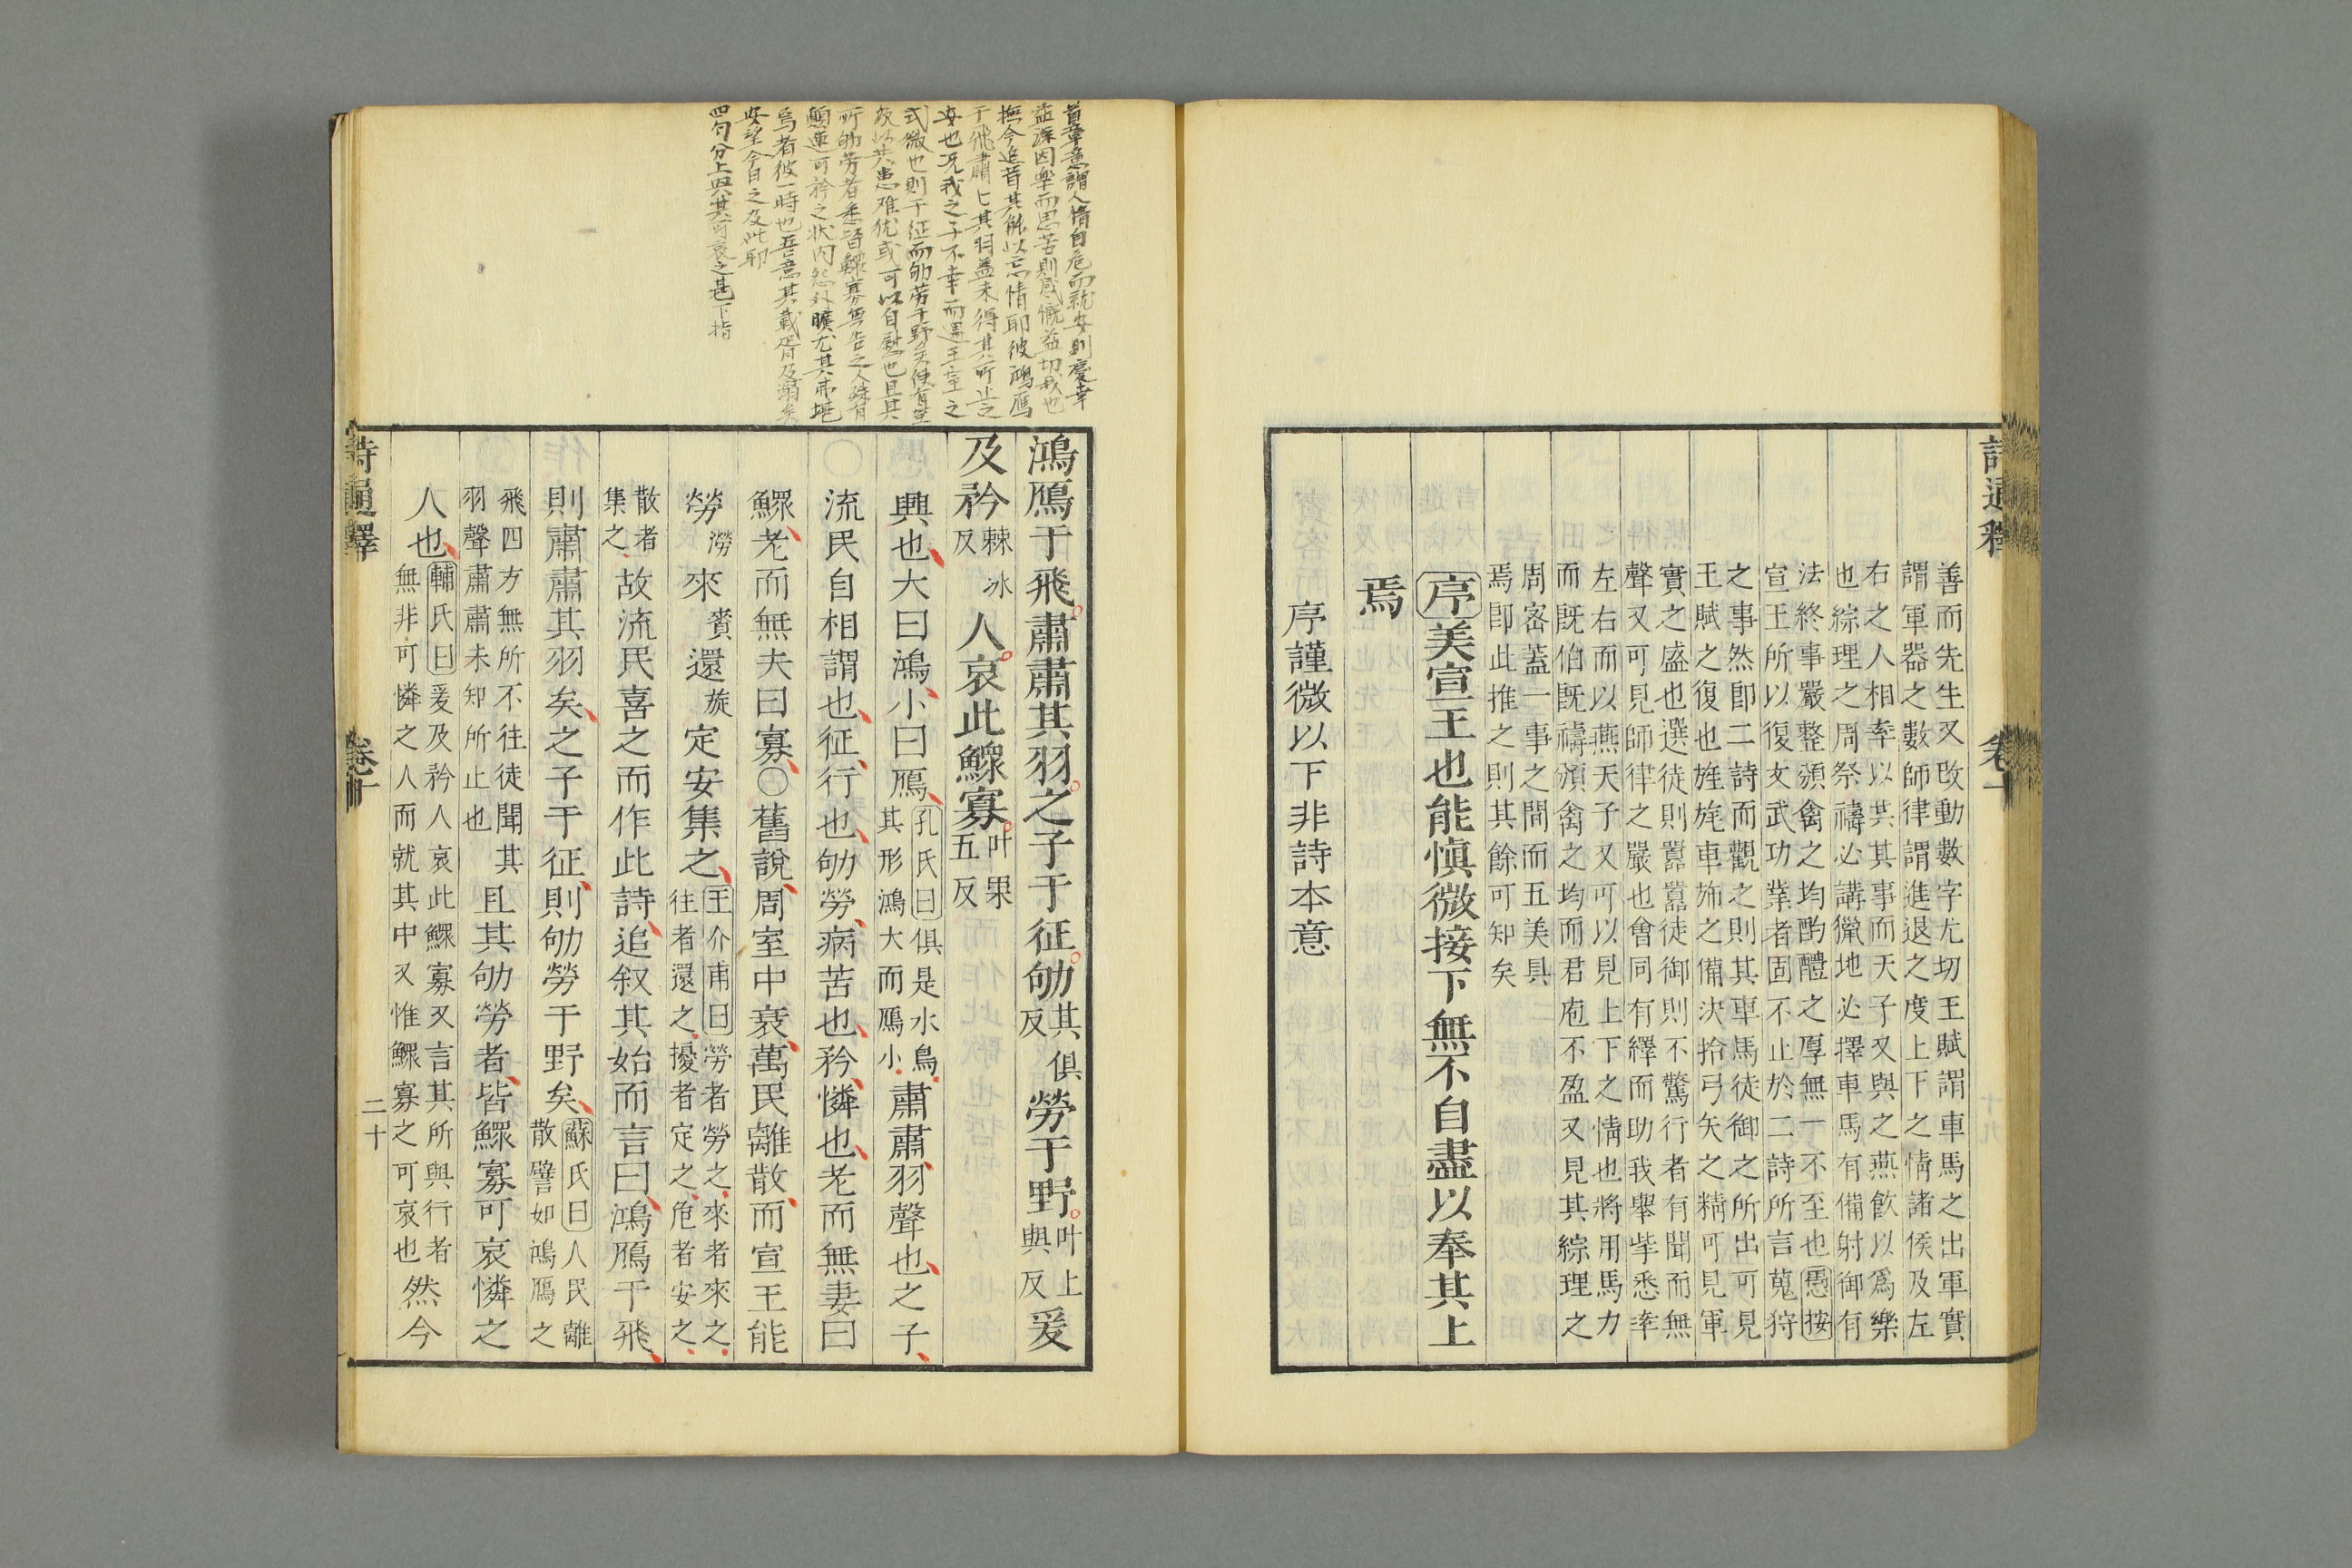 詩通釋
卷十
善而先生又改動數字尤切王賦謂車馬之出軍實
謂軍器之數師律謂進退之度上下之情諸侯及左
右之人相率以共其事而天子又與之燕飲以爲樂
也綜理之周祭禱必講獵地必擇車馬有備射御有
法終事嚴整頒禽之均酌醴之厚無一不至也愚按
宣王所以復文武功業者固不止於二詩所言蒐狩
之事然即二詩而觀之則其車馬徒御之所出可見
王賦之復也旌旄車斾之備決拾弓矢之精可見軍
實之盛也選徒則囂囂徒御則不驚行者有聞而無
聲又可見師律之嚴也會同有繹而助我舉柴悉率
左右而以燕天子又可以見上下之情也將用馬力
而既伯既禱頒禽之均而君庖不盈又見其綜理之
周密蓋一事之間而五美具
焉即此推之則其餘可知矣
序美宣王也能慎微接下無不自盡以奉其上
焉
序謹微以下非詩本意
首章意謂人情自危而就安則慶幸
益深因樂而思苦則感慨益切我也
撫今追昔其能以忘情耶彼鴻鴈
于飛肅匕其羽蓋未得其所止之
安也况我之子不幸而遇王室之
式微也則于征而劬劳于野矣使有室
家以共患难犹或可以自慰也且其
所劬劳者悉皆鰥寡無告之人殊有
顛連可矜之状内怨外曠尤其弗堪
焉者彼一時也吾意其載胥及溺矣
安望今日之及此耶
四句分上興其可哀之甚下指
鴻鴈于飛肅肅其羽之子于征劬其俱反勞于野叶上與反爰
及矜棘冰反人哀此鰥寡叶果五反
興也大曰鴻小曰鴈孔氏曰俱是水鳥其形鴻大而鴈小肅肅羽聲也之子
流民自相謂也征行也劬勞病苦也矜憐也老而無妻曰
鰥老而無夫曰寡○舊說周室中衰萬民離散而宣王能
勞澇來賚還旋定安集之王介甫曰勞者勞之來者來之往者還之擾者定之危者安之
散者集之故流民喜之而作此詩追叙其始而言曰鴻鴈于飛
則肅肅其羽矣之子于征則劬勞于野矣蘇氏曰人民離散譬如鴻鴈之
飛四方無所不往徒聞其羽聲肅肅未知所止也且其劬勞者皆鰥寡可哀憐之
人也輔氏曰爰及矜人哀此鰥寡又言其所與行者無非可憐之人而就其中又惟鰥寡之可哀也然今
詩通釋
卷十
二十